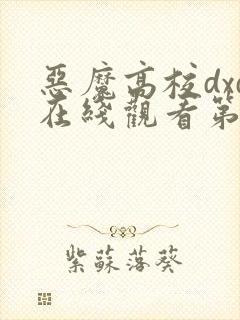 惡魔高校dxd
在綫觀看第
紫蘇落葵